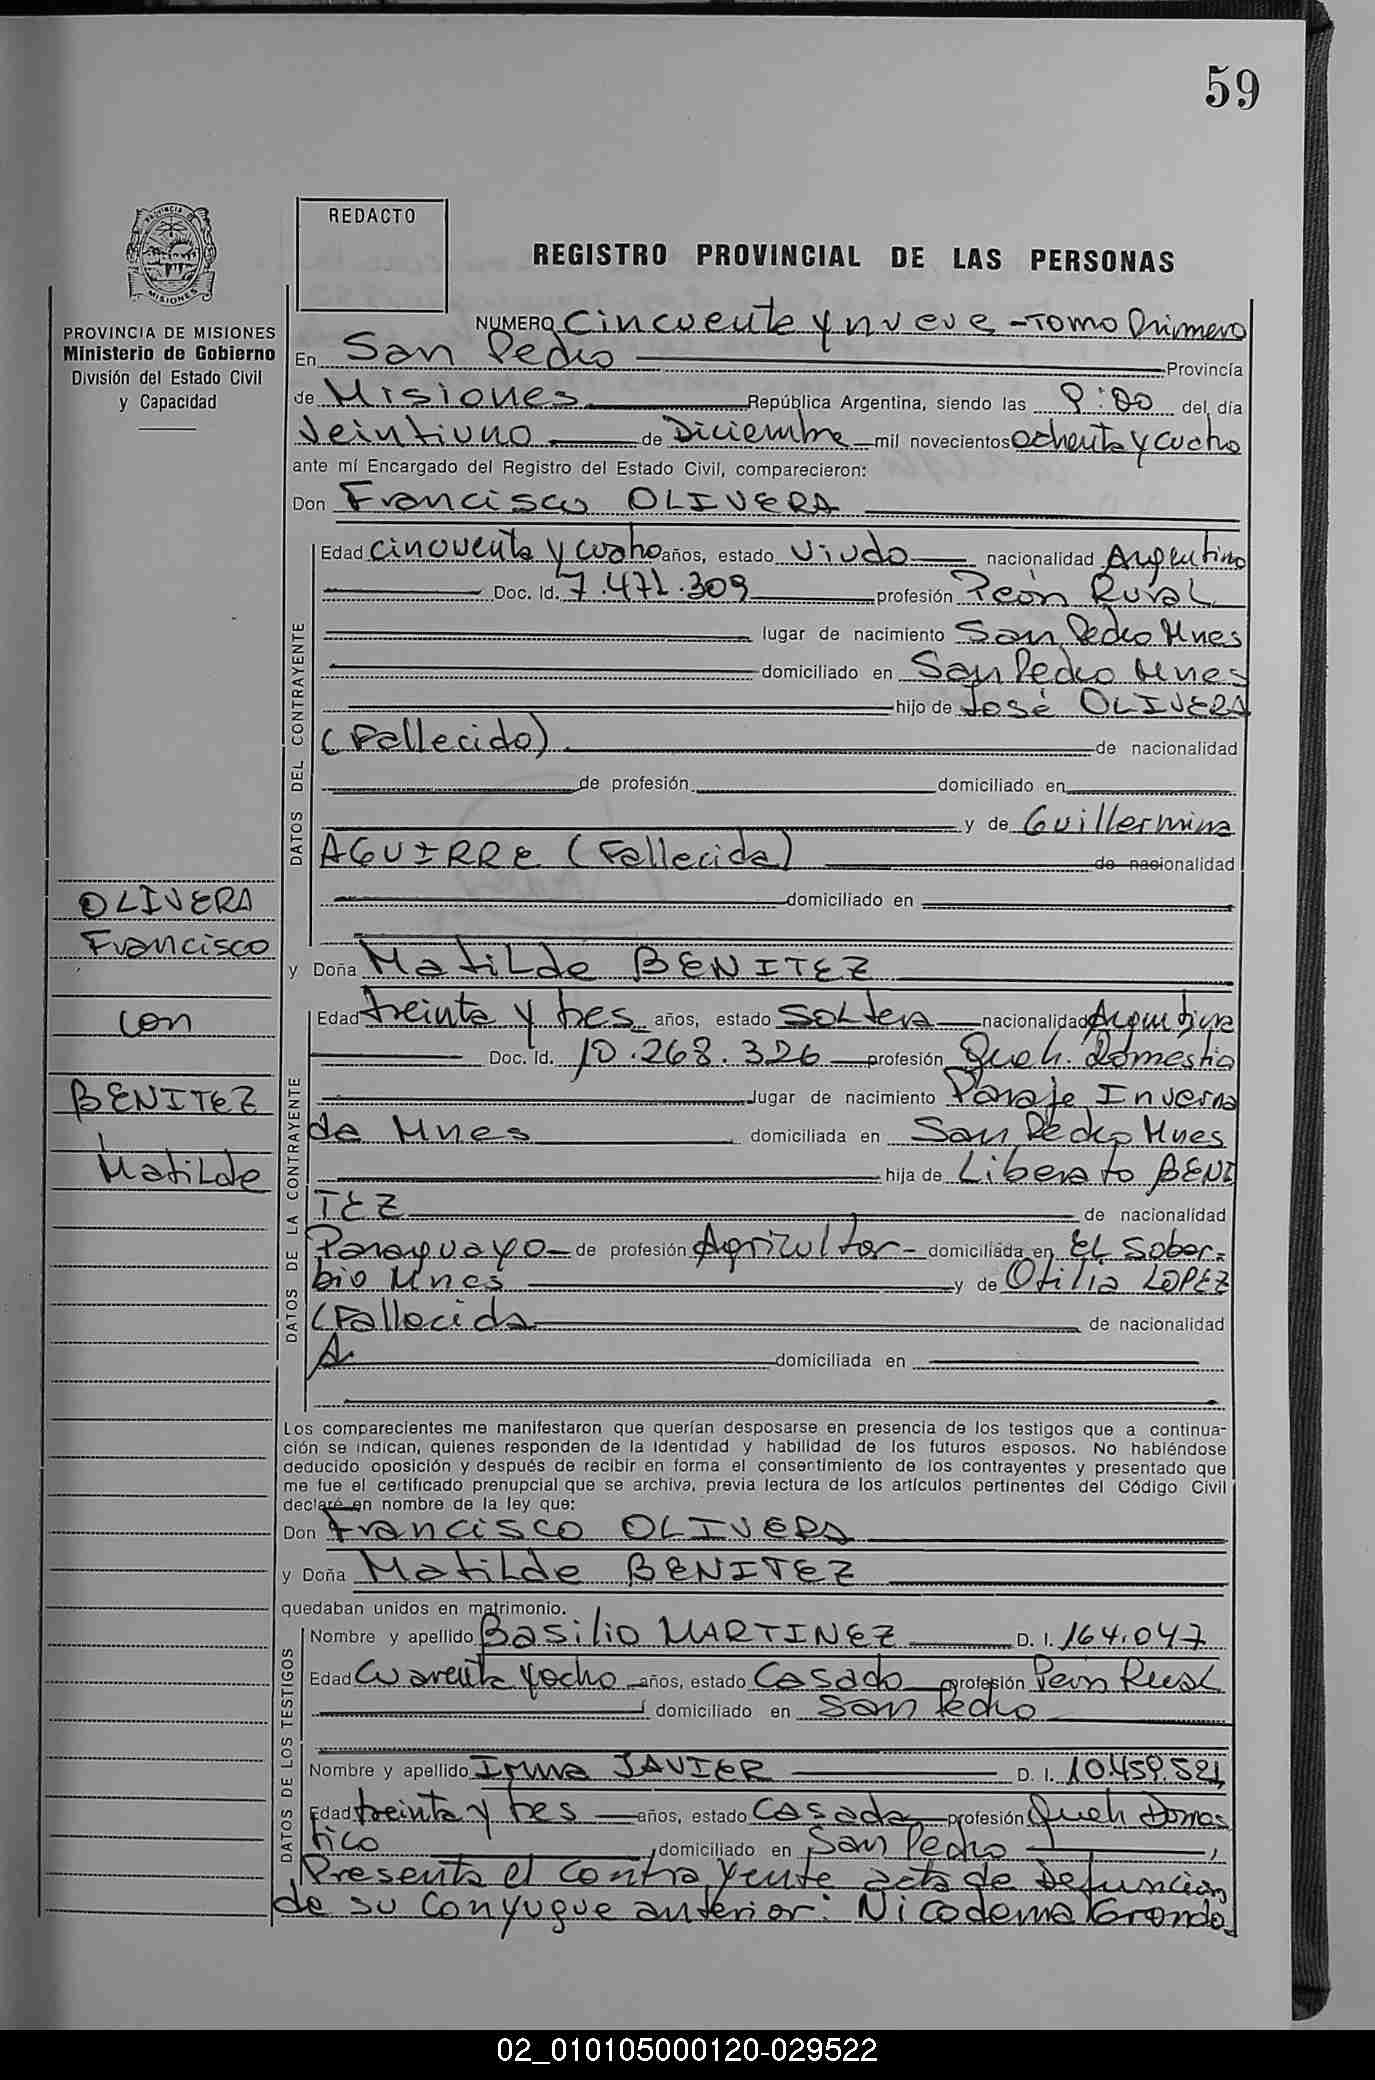 59
REDACTO
REGISTRO PROVINCIAL DE LAS PERSONAS
PROVINCIA DE MISIONES
Ministerio de Gobierno
División del Estado Civil
y Capacidad
OLIVERA
Francisco
con
BENITEZ
Matilde
NUMERO Cincuenta y nueve - Tomo Primero
En San Pedro Provincia
de Misiones República Argentina, siendo las 9:00 del día
Veintiuno de Diciembre mil novecientos ochenta y cuatro
ante mí Encargado del Registro del Estado Civil, comparecieron:
Don Francisco OLIVERA
DATOS DEL CONTRAYENTE
Edad cincuenta y cuatro años, estado Viudo nacionalidad Argentino
Doc. Id. 7.471.309 profesión Peón Rural
lugar de nacimiento San Pedro Mnes
domiciliado en San Pedro Mnes
hijo de José OLIVERA
(Fallecido) de nacionalidad
de profesión domiciliado en
y de Guillermina
AGUIRRE (Fallecida) de nacionalidad
domiciliado en
y Doña Matilde BENITEZ
DATOS DE LA CONTRAYENTE
Edad treinta y tres años, estado Soltera nacionalidad Argentina
Doc. Id. 10.268.326 profesión Queh. Domestico
lugar de nacimiento Paraje Inverna
da Mnes domiciliada en San Pedro Mnes
hija de Liberato BENI
TEZ de nacionalidad
Paraguayo de profesión Agricultor - domiciliada en El Sober-
bio Mnes y de Otilia LOPEZ
(Fallecida de nacionalidad
domiciliada en
Los comparecientes me manifestaron que querían desposarse en presencia de los testigos que a continua-
ción se indican, quienes responden de la identidad y habilidad de los futuros esposos. No habiéndose
deducido oposición y después de recibir en forma el consentimiento de los contrayentes y presentado que
me fue el certificado prenupcial que se archiva, previa lectura de los artículos pertinentes del Código Civil
declaré en nombre de la ley que:
Don Francisco OLIVERA
y Doña Matilde BENITEZ
quedaban unidos en matrimonio.
DATOS DE LOS TESTIGOS
Nombre y apellido Basilio MARTINEZ D. I. 164.047
Edad Cuarenta y ocho años, estado Casado profesión Peón Rural
domiciliado en San Pedro
Nombre y apellido Irma JAVIER D. I. 10.459.521
Edad treinta y tres años, estado Casada profesión Queh Domes
tico domiciliado en San Pedro
Presenta el contrayente acta de Defunción
de su conyugue anterior: Nicodema Grondo
02_010105000120-029522